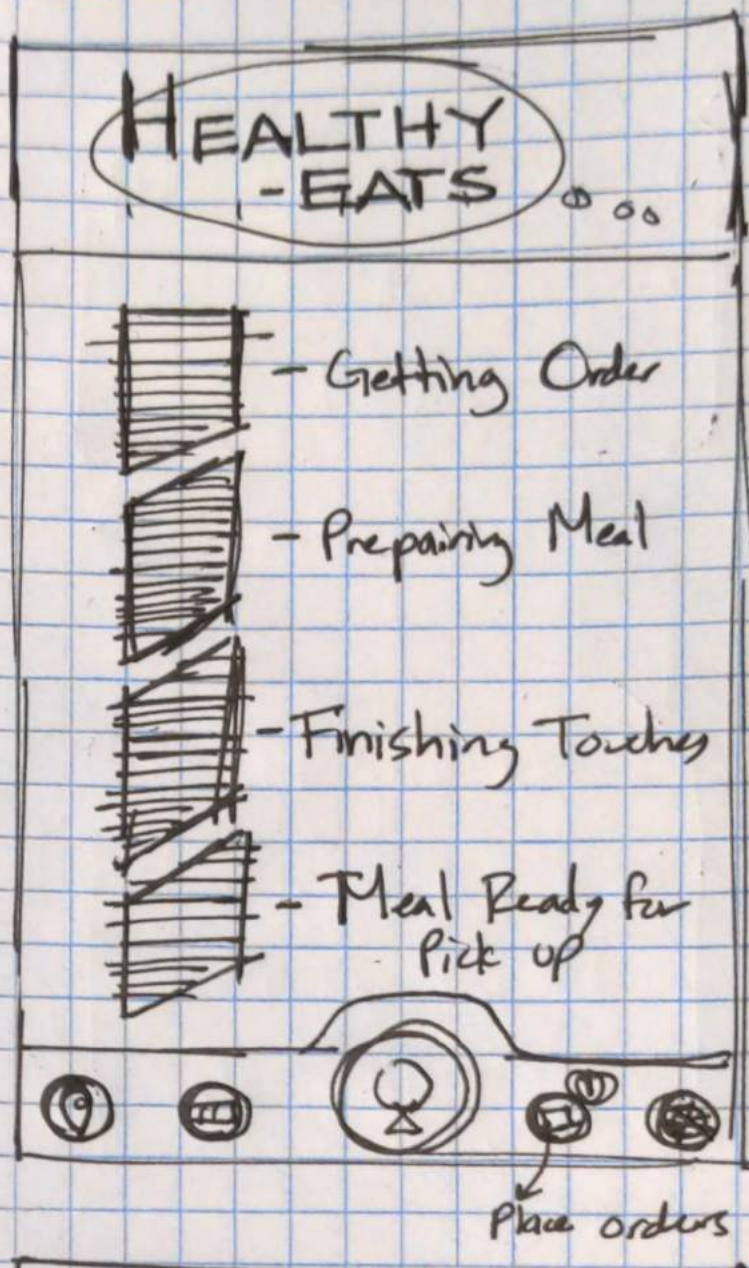 HEALTHY
-EATS
- Getting Order
- Prepairing Meal
- Finishing Touches
- Meal Ready for
Pick up
Place orders